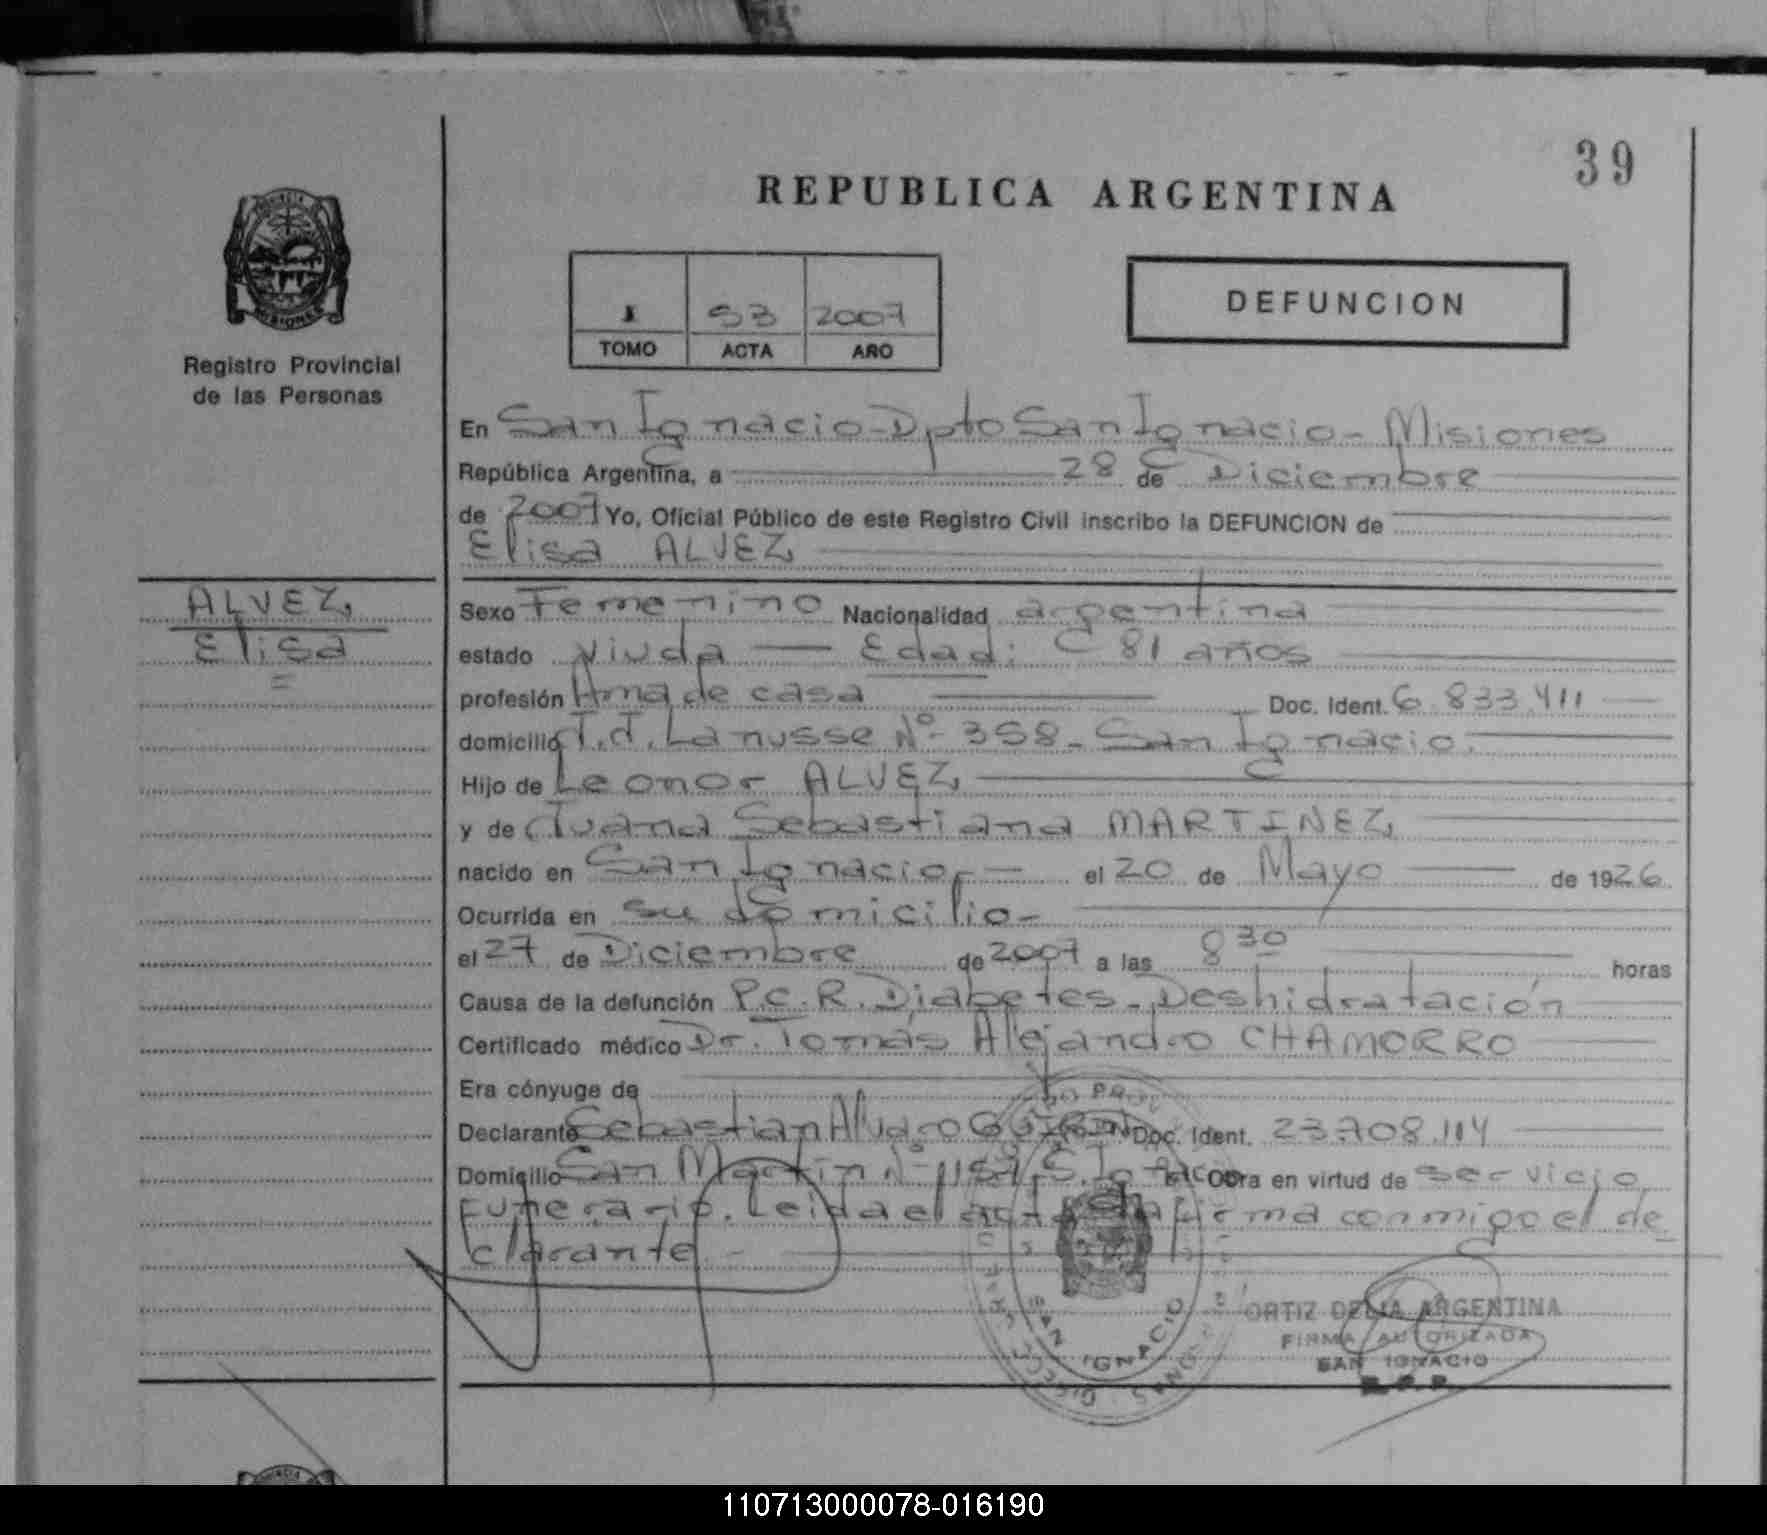 39
REPUBLICA ARGENTINA
PROVINCIA DE
MISIONES
Registro Provincial
de las Personas
I 53 2007
TOMO ACTA AÑO
DEFUNCION
En San Ignacio - Dpto San Ignacio - Misiones
República Argentina, a 28 de Diciembre
de 2007 Yo, Oficial Público de este Registro Civil inscribo la DEFUNCION de
Elisa ALVEZ
ALVEZ,
Elisa
Sexo Femenino Nacionalidad argentina
estado viuda — Edad: 81 años
profesión Ama de casa Doc. Ident. 6.833.411
domicilio T.J. Lanusse Nº 358 - San Ignacio.
Hijo de Leonor ALVEZ
y de Juana Sebastiana MARTINEZ
nacido en San Ignacio, - el 20 de Mayo de 1926
Ocurrida en su domicilio -
el 27 de Diciembre de 2007 a las 8 30 horas
Causa de la defunción P.C.R. Diabetes - Deshidratación
Certificado médico Dr. Tomás Alejandro CHAMORRO
Era cónyuge de
Declarante Sebastian Alvaro Doc. Ident. 23.708.114
Domicilio San Martin Nº Obra en virtud de servicio
Funerario. Leida el acta la firma conmigo el de
clarante -
SAN IGNACIO
ORTIZ DELIA ARGENTINA
FIRMA AUTORIZADA
SAN IGNACIO
R.P.P.
110713000078-016190